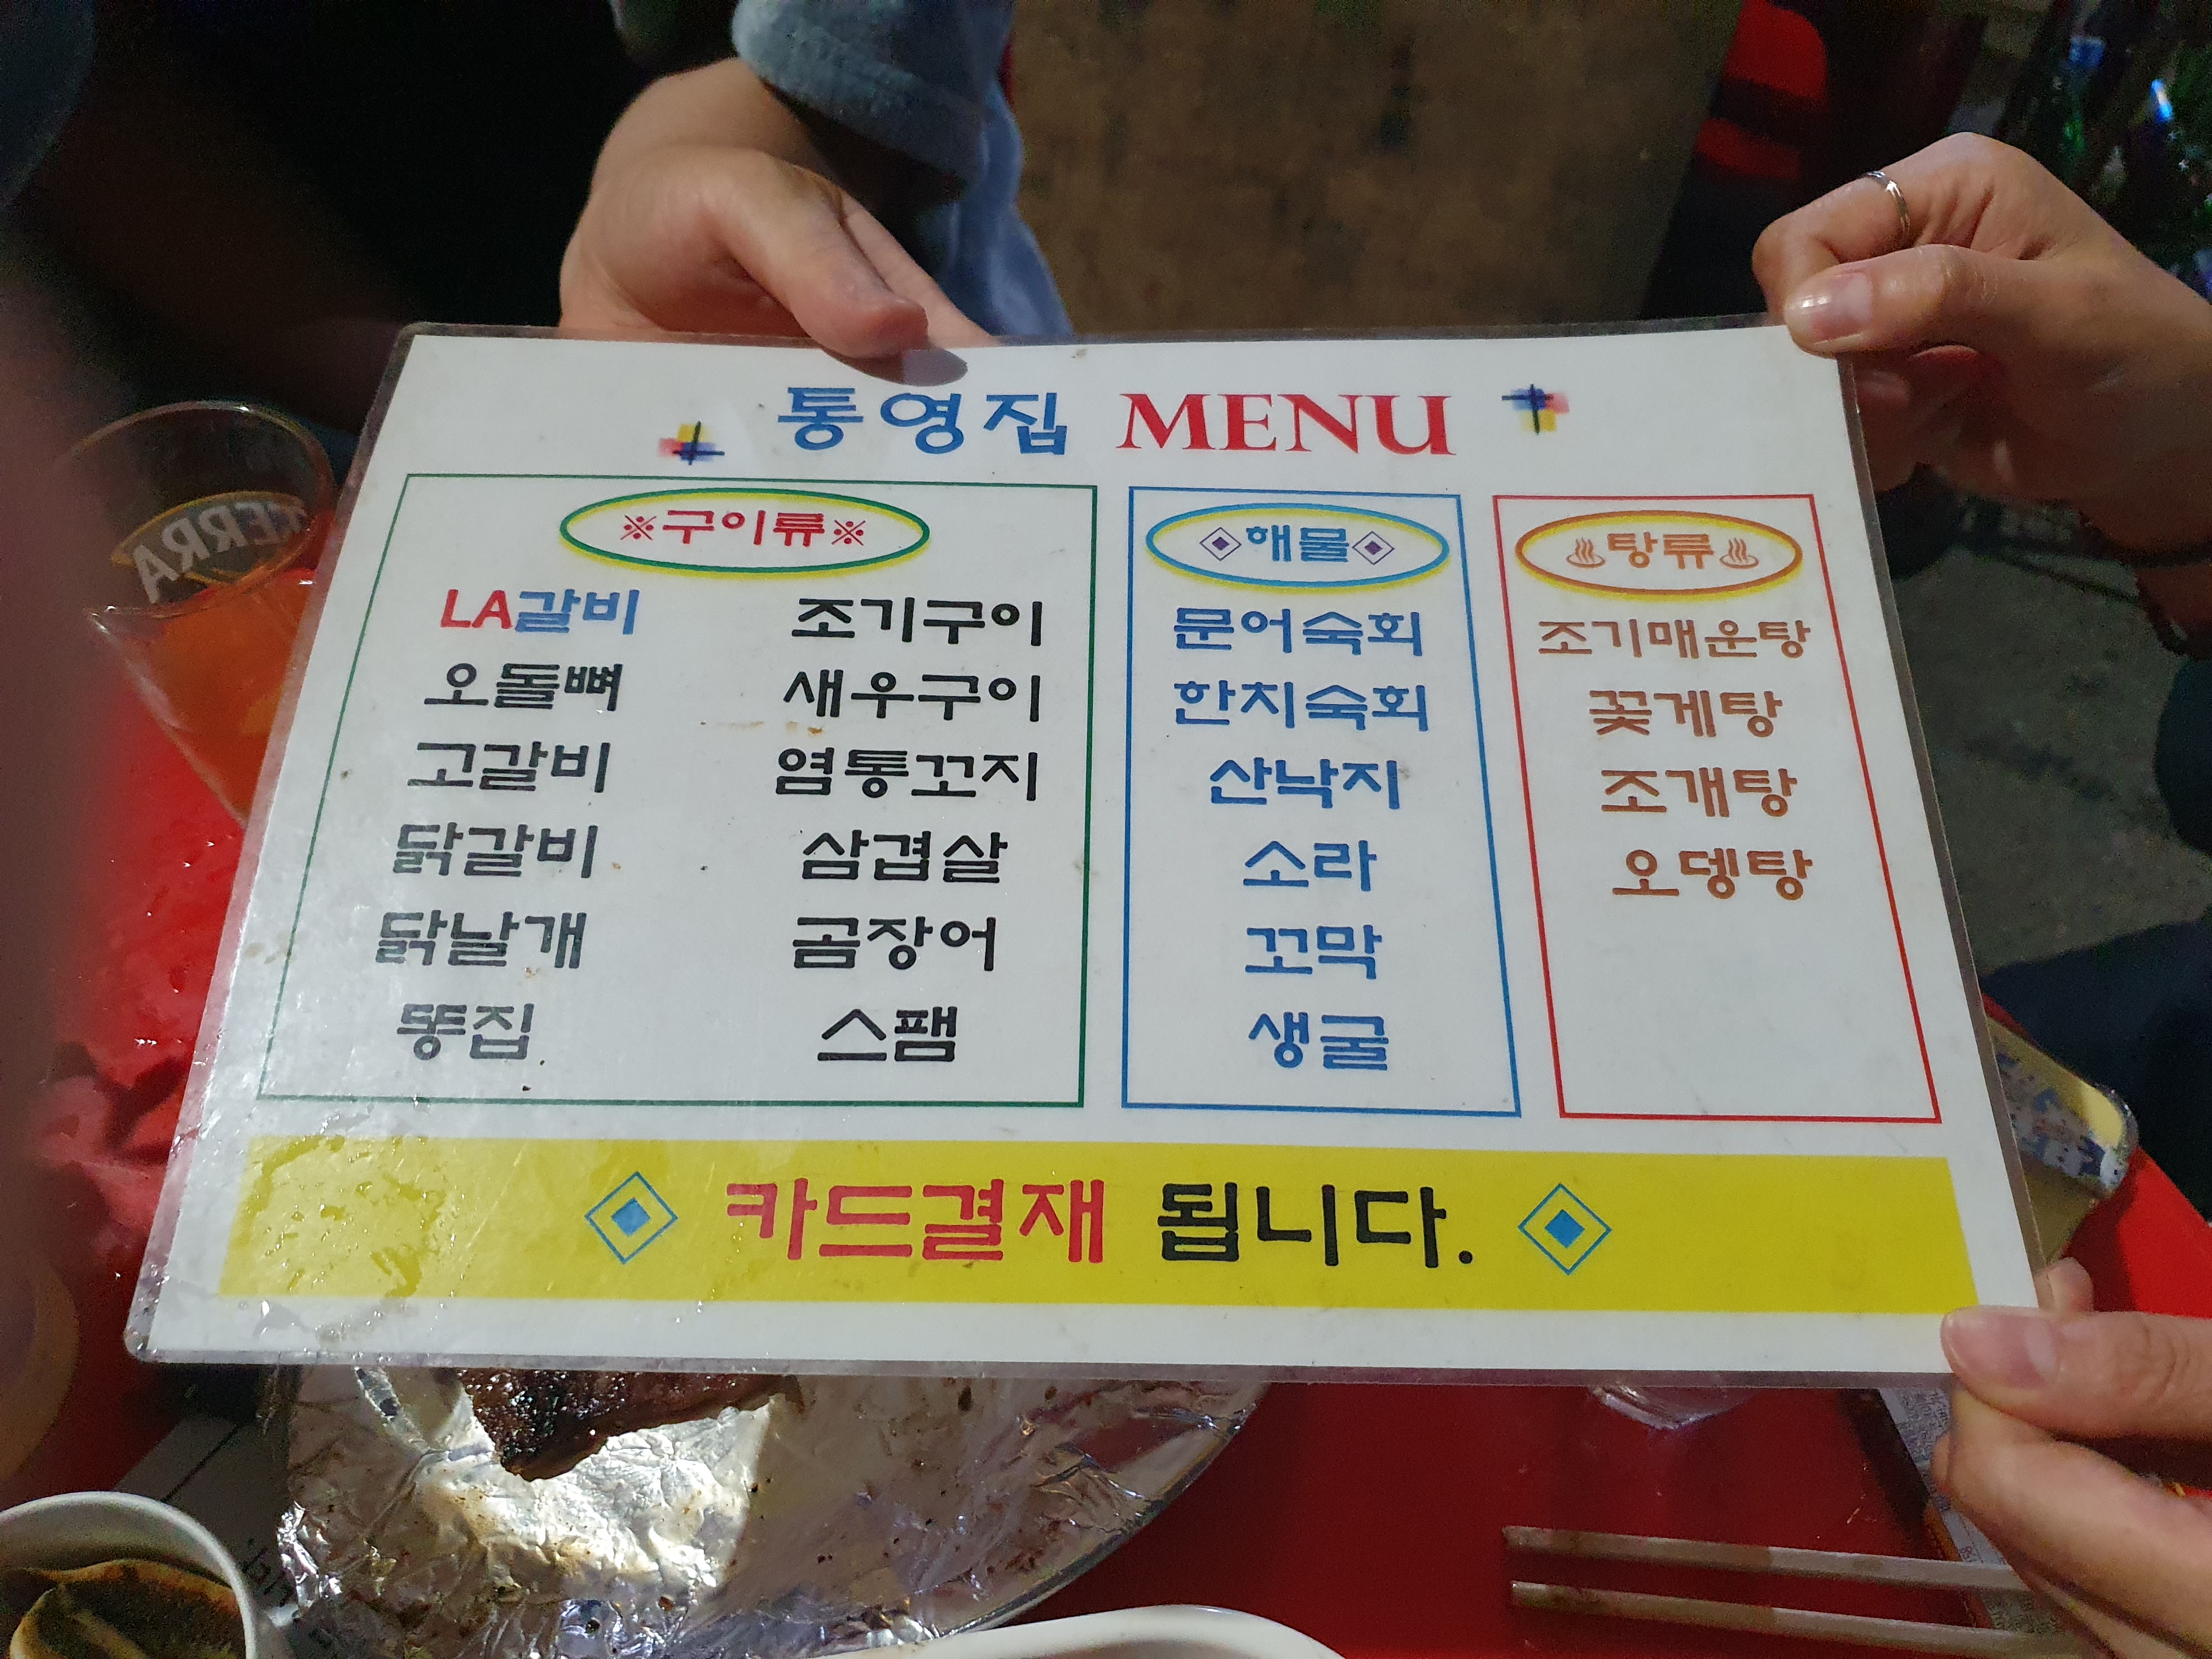 통영집 MENU
※구이류※
LA갈비
오돌뼈
고갈비
닭갈비
닭날개
똥집
조기구이
새우구이
염통꼬지
삼겹살
곰장어
스팸
◈해물◈
문어숙회
한치숙회
산낙지
소라
꼬막
생굴
♨탕류♨
조기매운탕
꽃게탕
조개탕
오뎅탕
◈ 카드결재 됩니다. ◈
TERRA